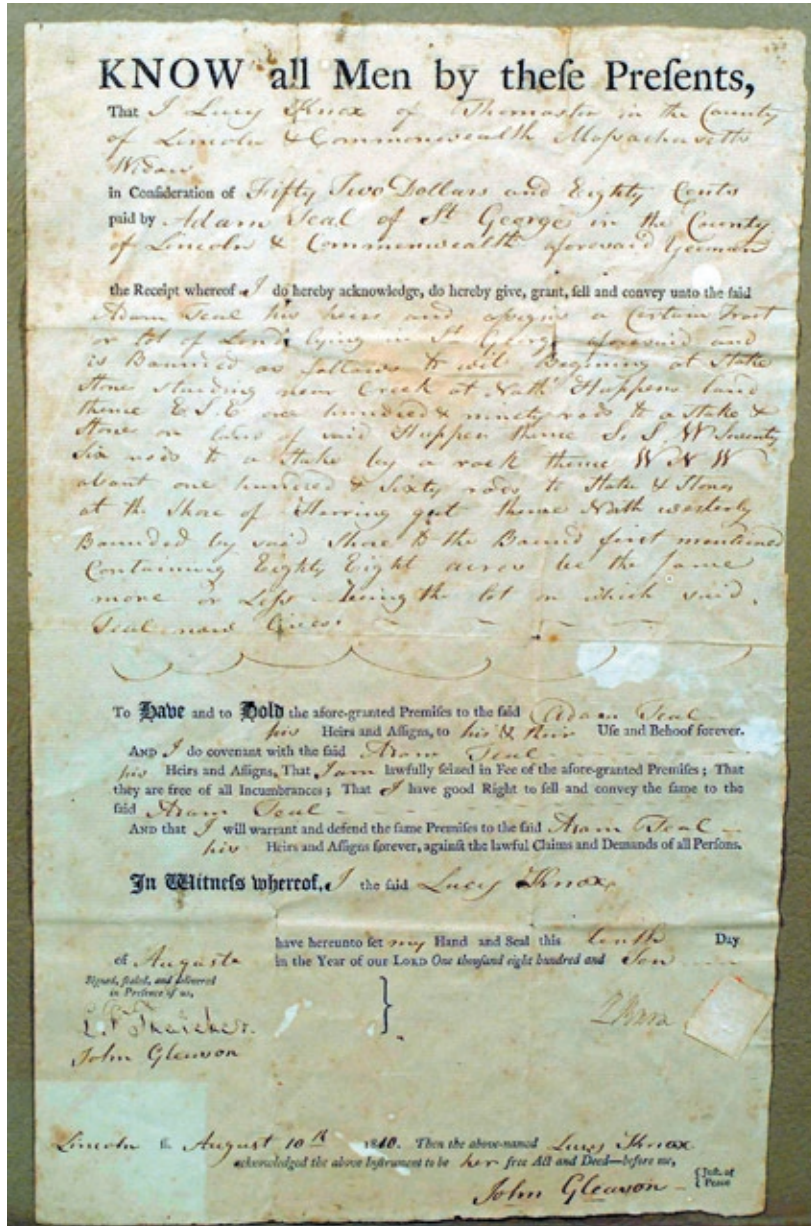 KNOW all Men by theſe Preſents,
That I Lucy Knox of Thomaston in the County
of Lincoln & Commonwealth Maſsachusetts
Widow
in Conſideration of Fifty Two Dollars and Eighty Cents
paid by Adam Teal of St George in the County
of Lincoln & Commonwealth aforesaid Yeoman
the Receipt whereof I do hereby acknowledge, do hereby give, grant, ſell and convey unto the ſaid
Adam Teal his heirs and aſsigns a Certain Tract
or lot of Land lying in St George aforesaid and
is Bounded as follows to wit Begining at Stake
Stone standing near Creek at Nath Huppers land
thence E.S.E one hundred & ninety rods to a Stake &
Stone on land of said Hupper thence S. S. W Seventy
Six rods to a Stake by a rock thence W N W
about one hundred & Sixty rods to Stake & Stones
at the Shore of Herring gut thence North westerly
Bounded by said Shore to the Bound first mentioned
Containing Eighty Eight acres be the Same
more or Leſs being the lot on which said
Teal now lives.
To Have and to Hold the afore-granted Premiſes to the ſaid Adam Teal
his Heirs and Aſſigns, to his & their Uſe and Behoof forever.
AND I do covenant with the ſaid Adam Teal
his Heirs and Aſſigns, That I am lawfully ſeized in Fee of the afore-granted Premiſes; That
they are free of all Incumbrances; That I have good Right to ſell and convey the ſame to the
ſaid Adam Teal
AND that I will warrant and defend the ſame Premiſes to the ſaid Adam Teal
his Heirs and Aſſigns forever, againſt the lawful Claims and Demands of all Perſons.
In Witneſs whereof, I the ſaid Lucy Knox
have hereunto ſet my Hand and Seal this tenth Day
of August in the Year of our LORD One thouſand eight hundred and Ten
Signed, ſealed, and delivered
in Preſence of us,
L Knox
John Gleason
Lincoln ſſ. August 10th 1810. Then the above-named Lucy Knox
acknowledged the above Inſtrument to be her free Act and Deed—before me,
John Gleason { Juſt. of
{ Peace